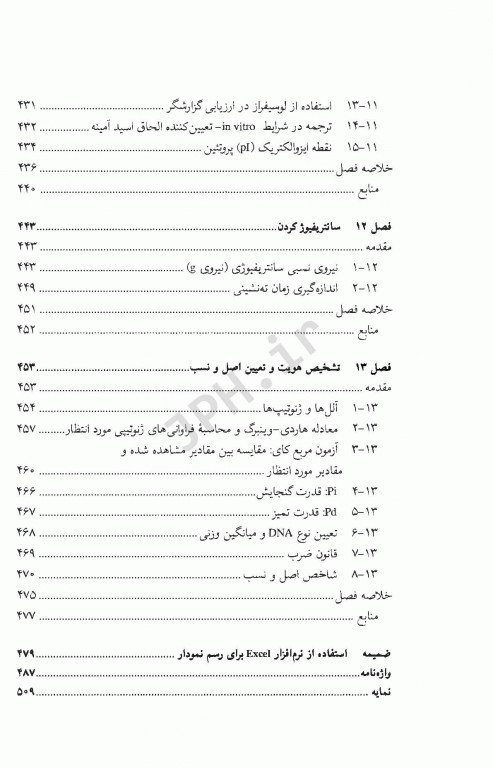 ۱۳-۱۱ استفاده از لوسیفراز در ارزیابی گزارشگر ........ ۴۳۱
۱۴-۱۱ ترجمه در شرایط in vitro– تعیین‌کننده الحاق اسید آمینه ........ ۴۳۲
۱۵-۱۱ نقطه ایزوالکتریک (pI) پروتئین ........ ۴۳۴
خلاصه فصل ........ ۴۳۶
منابع ........ ۴۴۰
فصل ۱۲ سانتریفیوژ کردن ........ ۴۴۳
مقدمه ........ ۴۴۳
۱-۱۲ نیروی نسبی سانتریفیوژی (نیروی g) ........ ۴۴۳
۲-۱۲ اندازه‌گیری زمان ته‌نشینی ........ ۴۴۹
خلاصه فصل ........ ۴۵۱
منابع ........ ۴۵۲
فصل ۱۳ تشخیص هویت و تعیین اصل و نسب ........ ۴۵۳
مقدمه ........ ۴۵۳
۱-۱۳ آلل‌ها و ژنوتیپ‌ها ........ ۴۵۴
۲-۱۳ معادله هاردی-وینبرگ و محاسبۀ فراوانی‌های ژنوتیپی مورد انتظار ........ ۴۵۷
۳-۱۳ آزمون مربع کای: مقایسه بین مقادیر مشاهده شده و
مقادیر مورد انتظار ........ ۴۶۰
۴-۱۳ Pi: قدرت گنجایش ........ ۴۶۶
۵-۱۳ Pd: قدرت تمیز ........ ۴۶۷
۶-۱۳ تعیین نوع DNA و میانگین وزنی ........ ۴۶۸
۷-۱۳ قانون ضرب ........ ۴۶۹
۸-۱۳ شاخص اصل و نسب ........ ۴۷۰
خلاصه فصل ........ ۴۷۵
منابع ........ ۴۷۷
ضمیمه استفاده از نرم‌افزار Excel برای رسم نمودار ........ ۴۷۹
واژه‌نامه ........ ۴۸۷
نمایه ........ ۵۰۹
JPH.ir